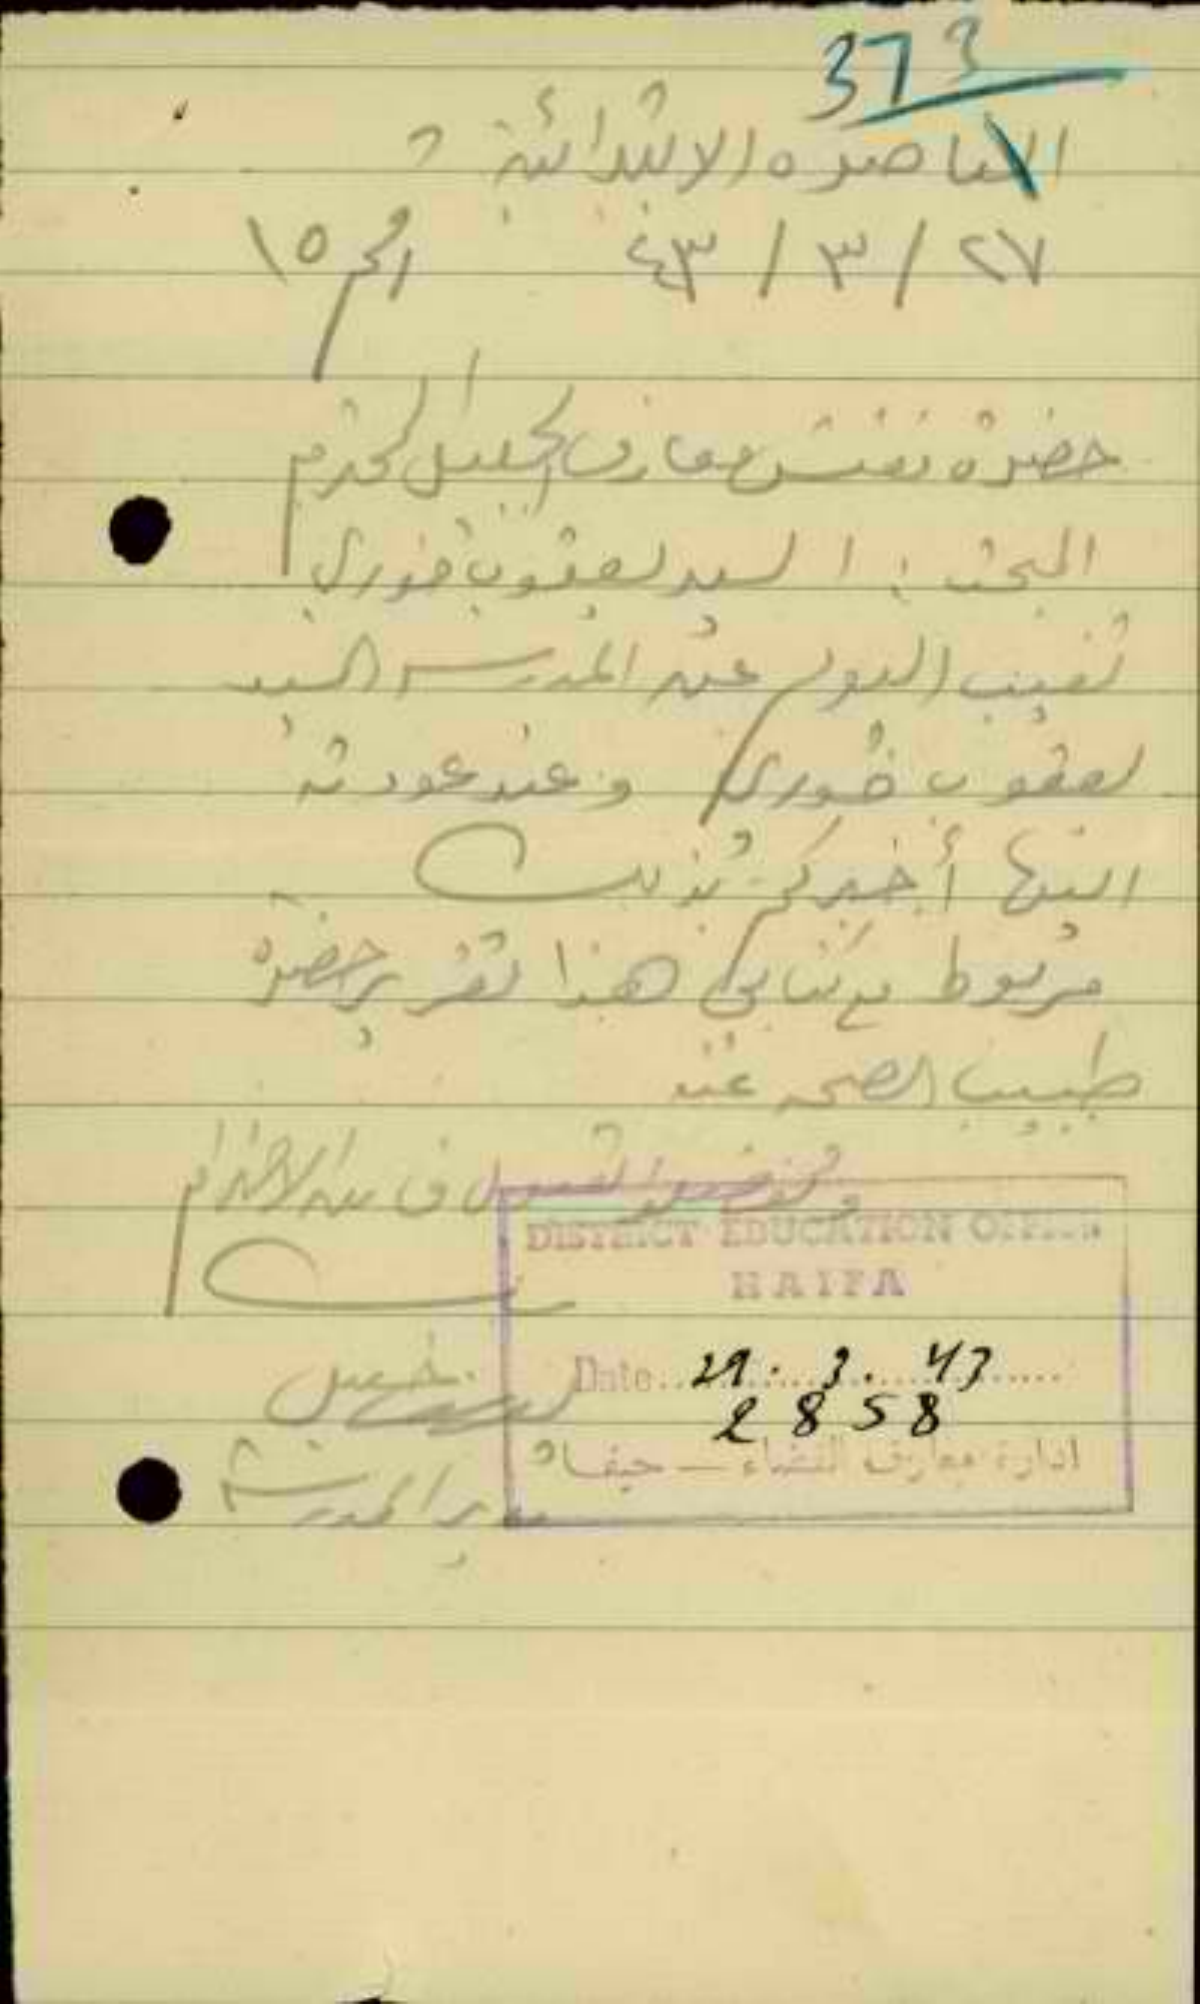 373
الناصره الابتدائية
٢٧ / ٣ / ٤٣ الرقم ١٥
حضرة مفتش معارف الجليل المحترم
المبحث : السيد يعقوب خوري
تغيب اليوم عن المدرسه السيد
يعقوب خوري وعند عودته
اليها أخبركم بذلك
مربوط مع كتابي هذا تقرير حضرة
طبيب الصحه عنه
وتفضلوا بقبول فائق الاحترام
DISTRICT EDUCATION OFFICE
HAIFA
Date 29. 3. 43
2858
ادارة معارف القضاء — حيفا
مدير المدرسة